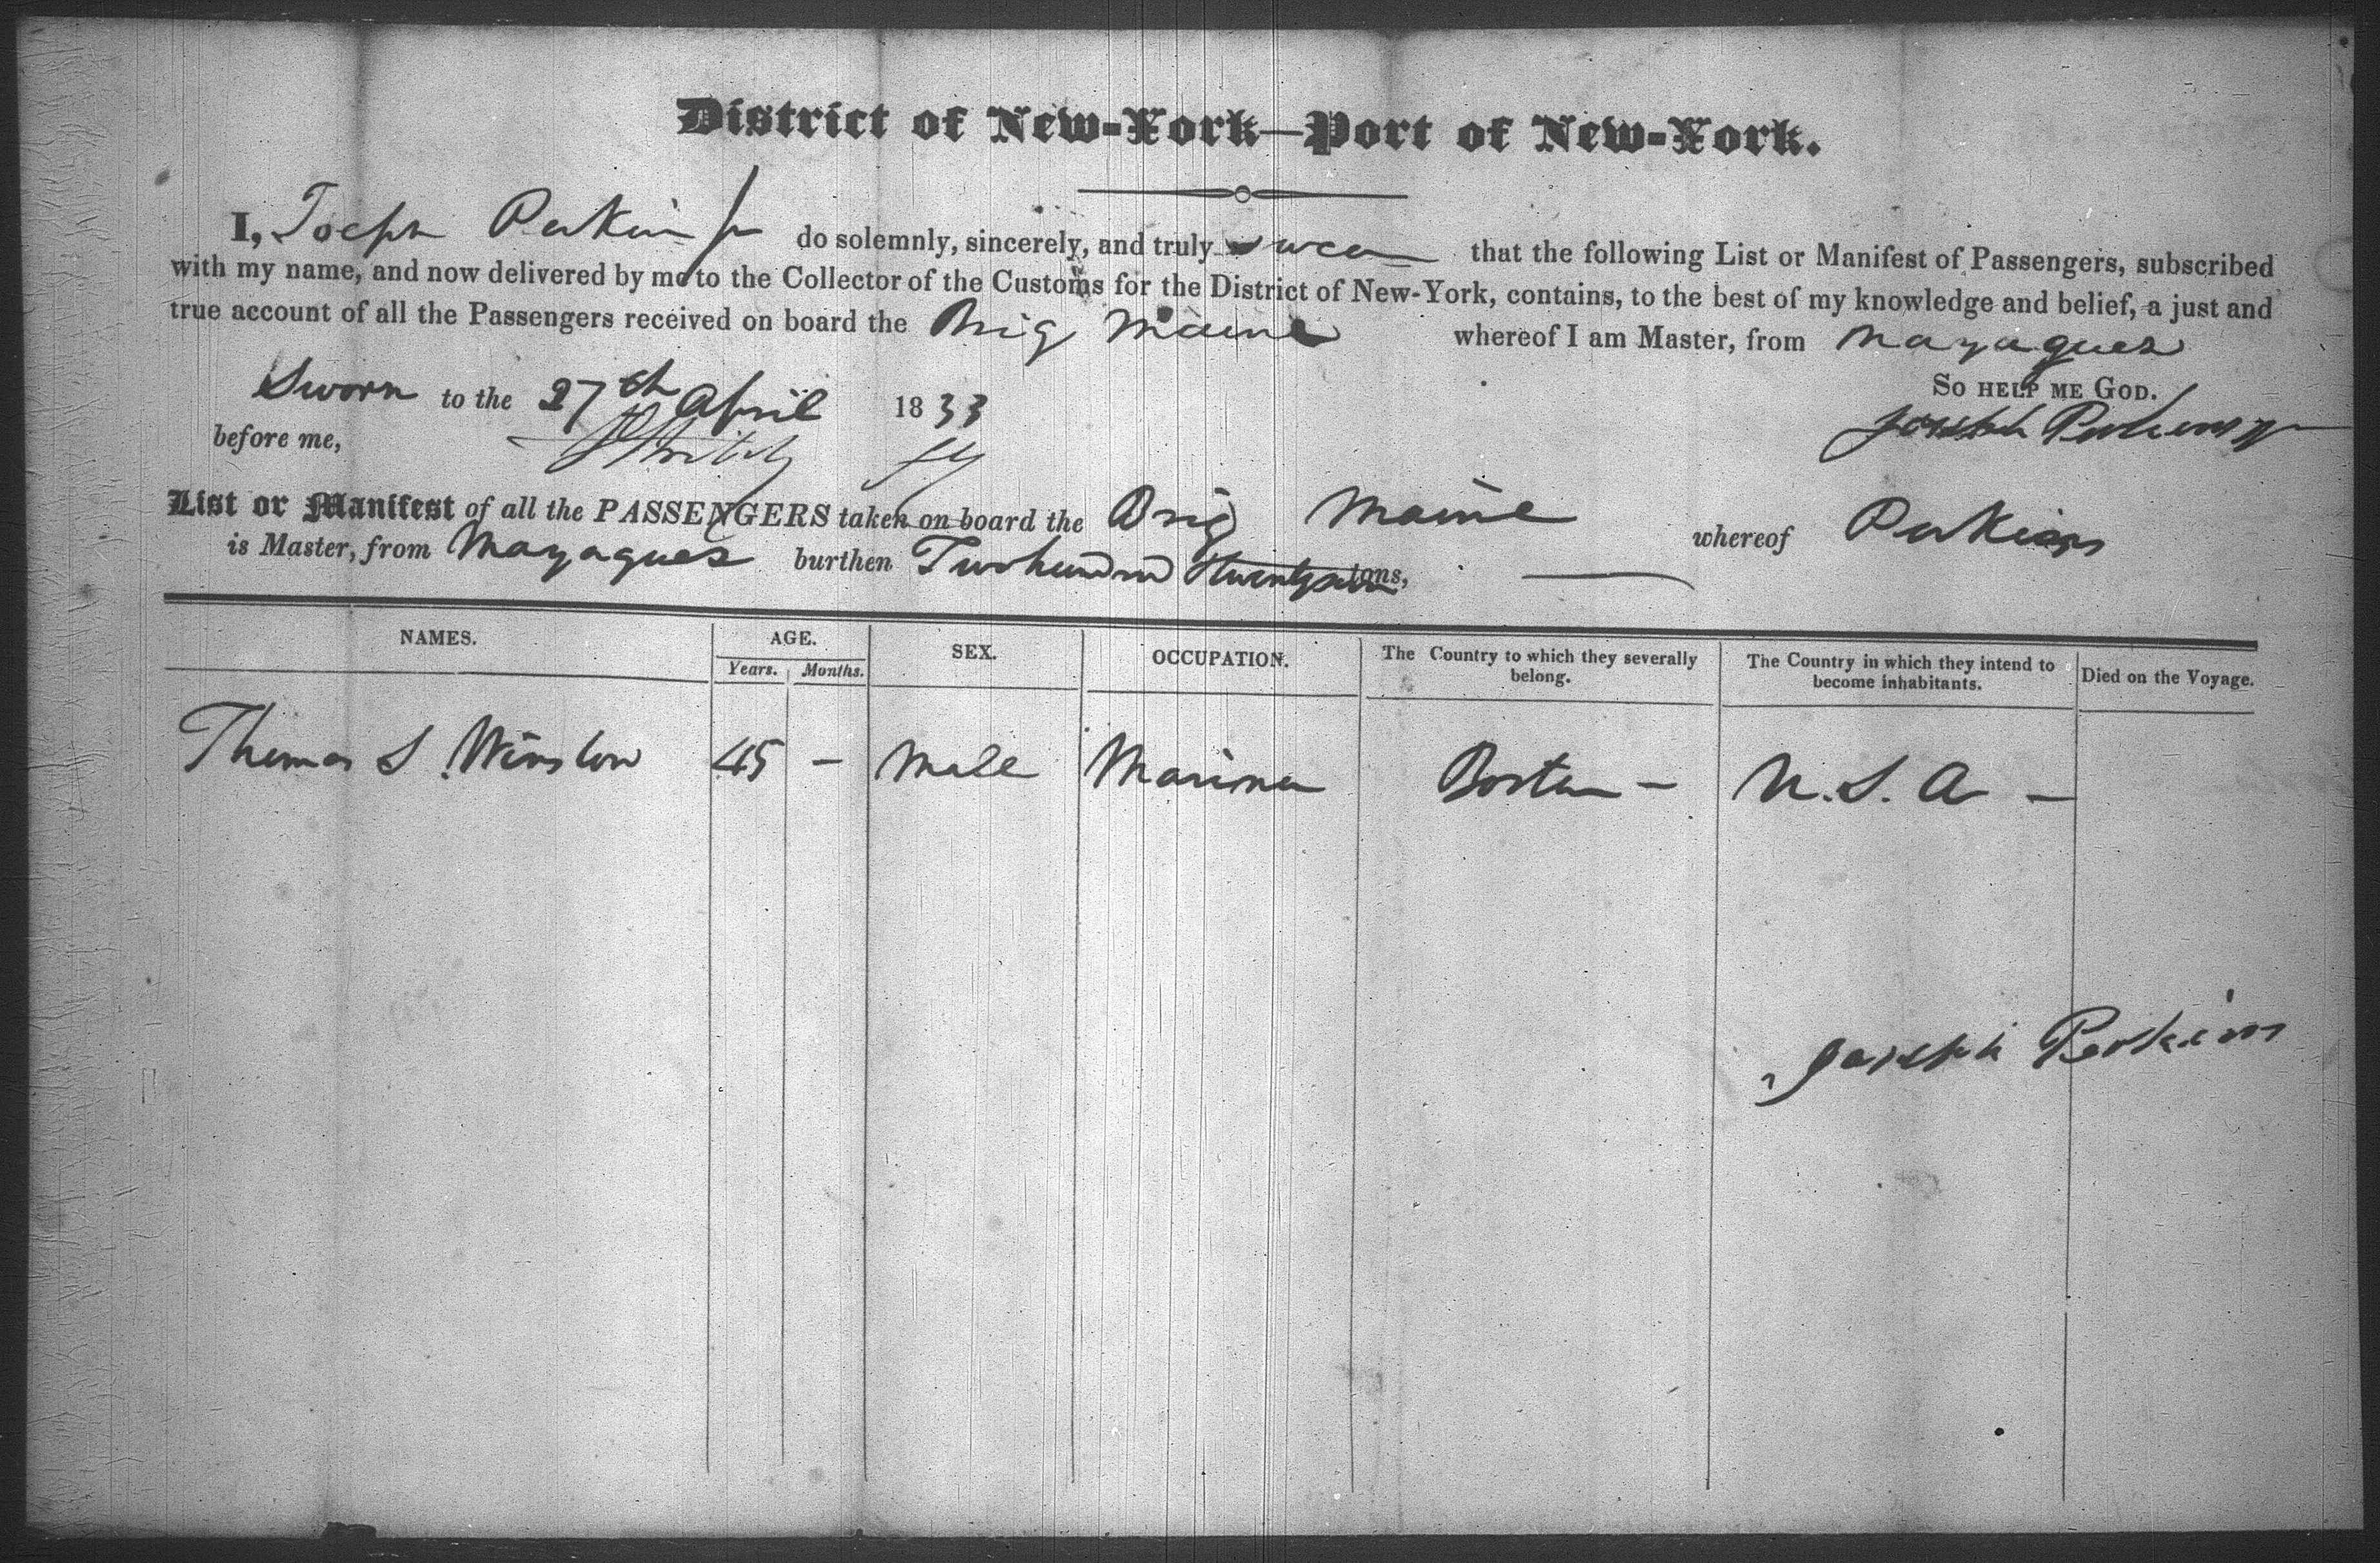 District of New-York—Port of New-York.
I, Joseph Perkins Jr do solemnly, sincerely, and truly swear that the following List or Manifest of Passengers, subscribed
with my name, and now delivered by me to the Collector of the Customs for the District of New-York, contains, to the best of my knowledge and belief, a just and
true account of all the Passengers received on board the Brig Maine whereof I am Master, from Mayaguez
Sworn to the 27th April 1833 So help me God.
before me, Joseph Perkins Jr
List or Manifest of all the PASSENGERS taken on board the Brig Maine whereof Perkins
is Master, from Mayaguez burthen Two hundred & twenty seven tons,
NAMES. AGE. SEX. OCCUPATION. The Country to which they severally belong. The Country in which they intend to become inhabitants. Died on the Voyage.
Years. Months.
Thomas S. Winslow 45 – Male Mariner Boston – U.S.A –
Joseph Perkins